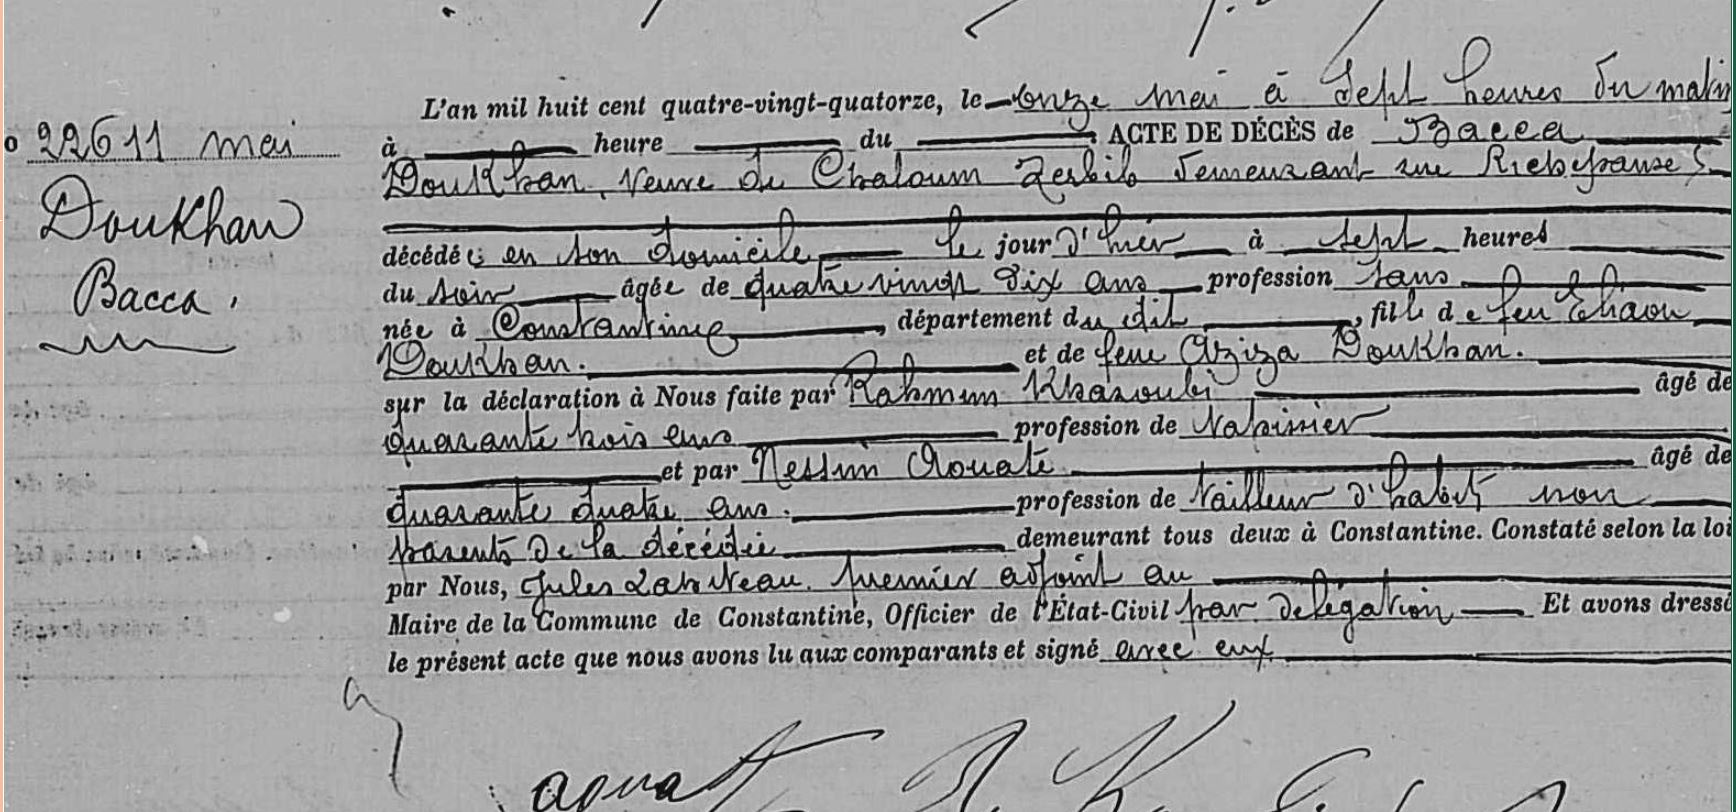 L'an mil huit cent quatre-vingt-quatorze, le onze mai à sept heures du matin
o 226 11 mai
à heure du : ACTE DE DÉCÈS de Bacca
Doukhan, veuve de Chaloum Zerbib demeurant rue Richepanse 5
Doukhan
décédée en son domicile le jour d'hier à sept heures
Bacca.
du soir âgée de quatre vingt dix ans profession sans
née à Constantine, département du dit, fille de feu
Doukhan. et de feue Aziza Doukhan.
sur la déclaration à Nous faite par Rahmim âgé de
quarante trois ans profession de tapissier
et par Nessim Aouate âgé de
quarante quatre ans. profession de tailleur d'habits non
parents de la décédée demeurant tous deux à Constantine. Constaté selon la loi
par Nous, Jules premier adjoint au
Maire de la Commune de Constantine, Officier de l'État-Civil par délégation Et avons dressé
le présent acte que nous avons lu aux comparants et signé avec eux